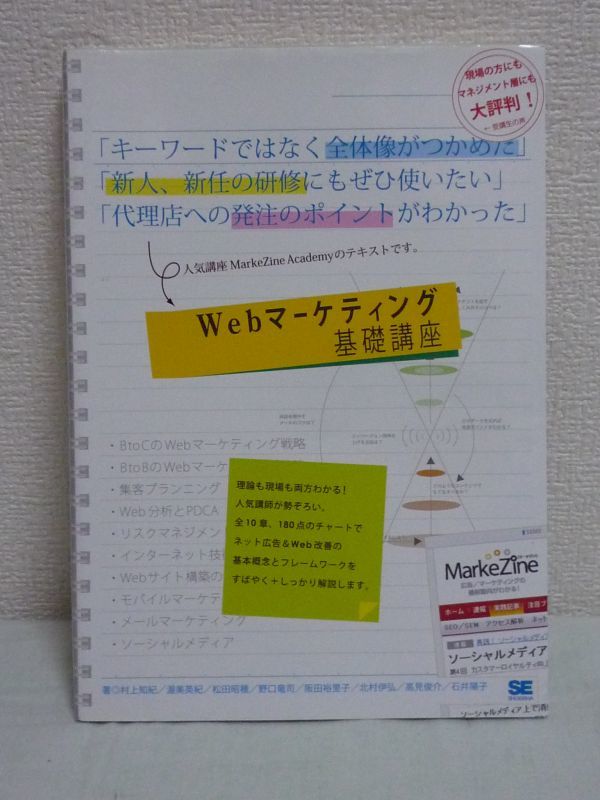 現場の方にも
マネジメント層にも
大評判！
←受講生の声
「キーワードではなく全体像がつかめた」
「新人、新任の研修にもぜひ使いたい」
「代理店への発注のポイントがわかった」
人気講座 MarkeZine Academyのテキストです。
Webマーケティング
基礎講座
・BtoCのWebマーケティング戦略
・BtoBのWebマーケ
・集客プランニング
・Web分析とPDCA
・リスクマネジメン
・インターネット技
・Webサイト構築の
・モバイルマーケテ
・メールマーケティング
・ソーシャルメディア
理論も現場も両方わかる！
人気講師が勢ぞろい。
全10章、180点のチャートで
ネット広告＆Web改善の
基本概念とフレームワークを
すばやく＋しっかり解説します。
MarkeZine
広告／マーケティングの
最新動向がわかる！
ホーム 速報 実践記事 注目プ
SEO／SEM アクセス解析 ネット
ソーシャルメディア
第4回 カスタマーロイヤルティ向上
ソーシャルメディア上で消
著◎村上知紀／渥美英紀／松田昭穂／野口竜司／阪田裕里子／北村伊弘／高見俊介／石井陽子
SE
SHOEISHA